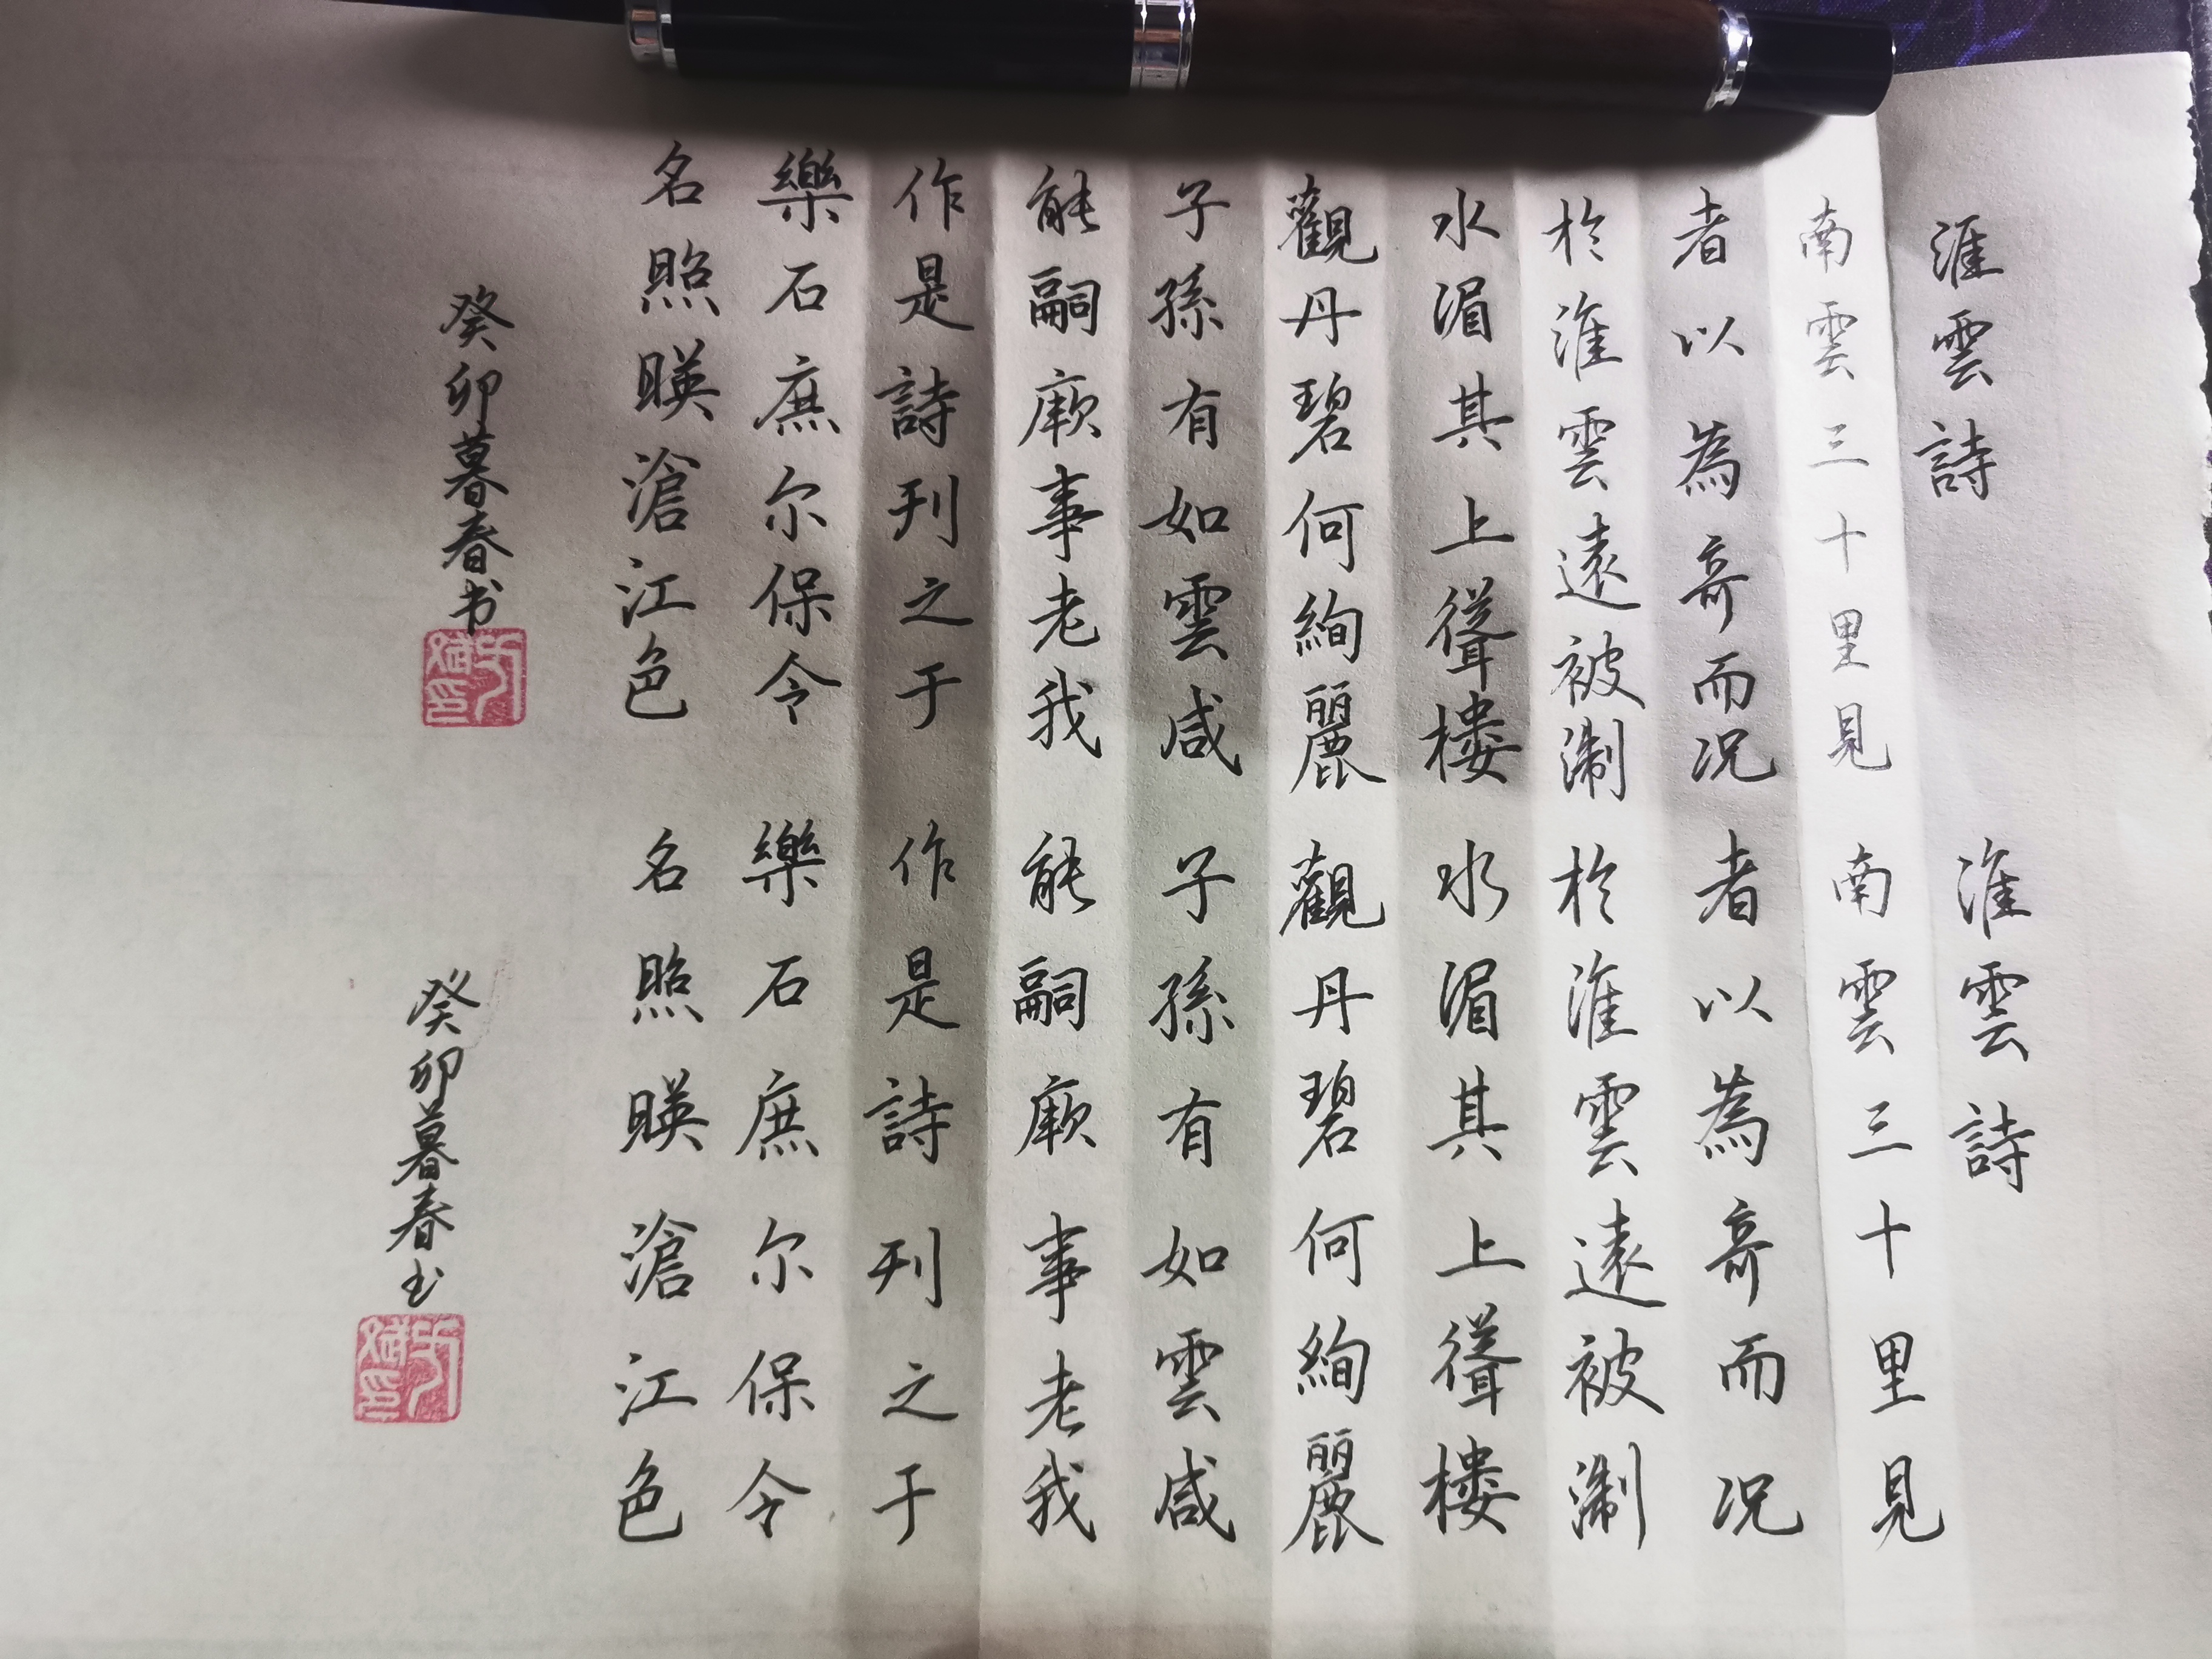 淮雲詩
南雲三十里見
者以為奇而况
於淮雲遠被淛
水湄其上聳樓
觀丹碧何絢麗
子孫有如雲咸
能嗣厥事老我
作是詩刊之于
樂石庶尔保令
名照暎滄江色
癸卯暮春书
淮雲詩
南雲三十里見
者以為奇而况
於淮雲遠被淛
水湄其上聳樓
觀丹碧何絢麗
子孫有如雲咸
能嗣厥事老我
作是詩刊之于
樂石庶尔保令
名照暎滄江色
癸卯暮春书